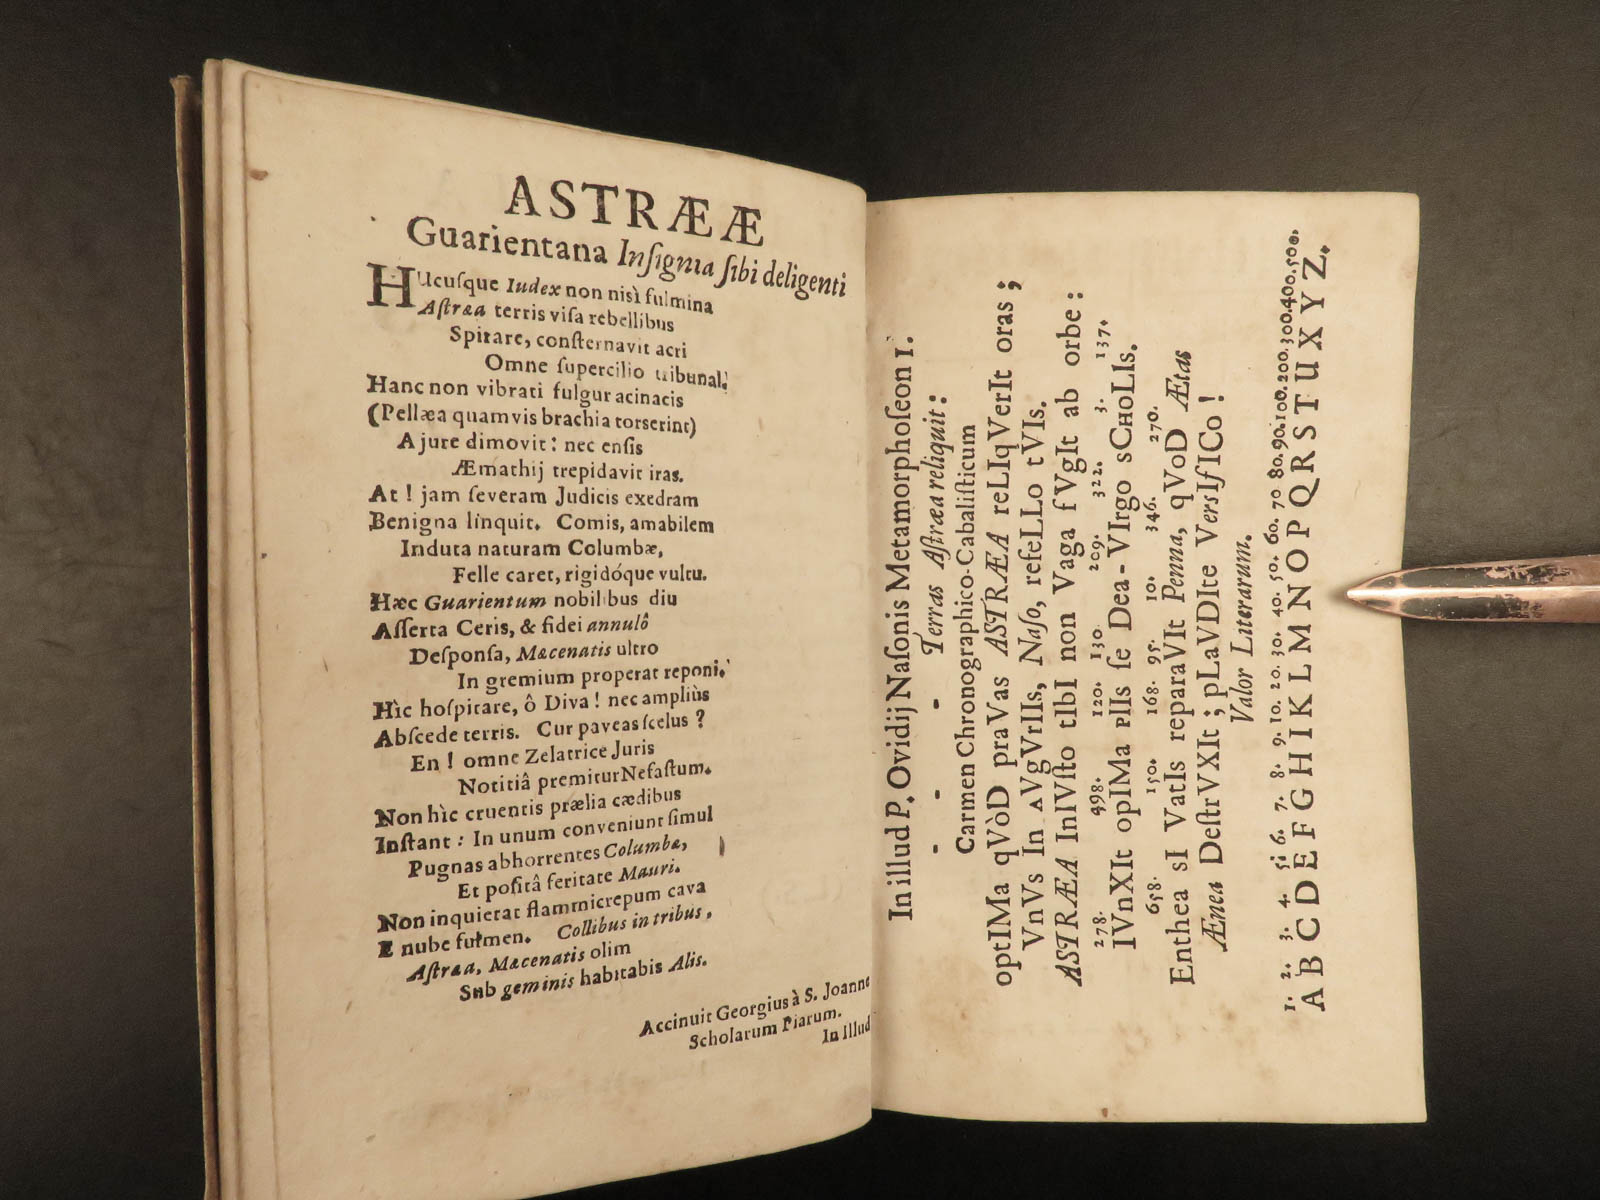 ASTRÆÆ
Guarientana Inſignia ſibi deligenti
HUcuſque Iudex non niſì fulmina
Aſtræa terris viſa rebellibus
Spirare, conſternavit acri
Omne ſupercilio tribunal.
Hanc non vibrati fulgur acinacis
(Pellæa quamvis brachia torserint)
A jure dimovit: nec enſis
Æmathij trepidavit iras.
At ! jam ſeveram Judicis exedram
Benigna linquit. Comis, amabilem
Induta naturam Columbæ,
Felle caret, rigidóque vultu.
Hæc Guarientum nobilibus diu
Aſſerta Ceris, & fidei annulô
Deſponſa, Mæcenatis ultro
In gremium properat reponi.
Hìc hoſpitare, ô Diva ! nec ampliùs
Abſcede terris. Cur paveas ſcelus ?
En ! omne Zelatrice Juris
Notitiâ premitur Nefaſtum.
Non hìc cruentis prælia cædibus
Inſtant : In unum conveniunt ſimul
Pugnas abhorrentes Columbæ,
Et poſitâ feritate Mauri.
Non inquietat flammicrepum cava
E nube fulmen. Collibus in tribus,
Aſtræa, Mæcenatis olim
Sub geminis habitabis Alis.
Accinuit Georgius à S. Joanne
Scholarum Piarum.
In illud
In illud P. Ovidij Naſonis Metamorphoſeon 1.
- - - Terras Aſtræa reliquit:
Carmen Chronographico-Cabaliſticum
optIMa qVòD praVas ASTRÆA reLIqVerIt oras;
VnVs In AVgVrIIs, Naſo, refeLLo tVIs.
ASTRÆA InIVſto tIbI non Vaga fVgIt ab orbe:
278. 498. 120. 130 209. 322. 3. 137.
IVnXIt opIMa pIIs ſe Dea-VIrgo sCHoLIs.
658. 150. 168. 95. 10. 346. 270.
Enthea sI VatIs reparaVIt Penna, qVoD Ætas
Ænea DeſtrVXIt; pLaVDIte VersIfICo!
Valor Literarum.
1. 2. 3. 4. 5. 6. 7. 8. 9. 10. 20. 30. 40. 50. 60. 70 80. 90. 100. 200. 300. 400. 500.
A B C D E F G H I K L M N O P Q R S T U X Y Z.